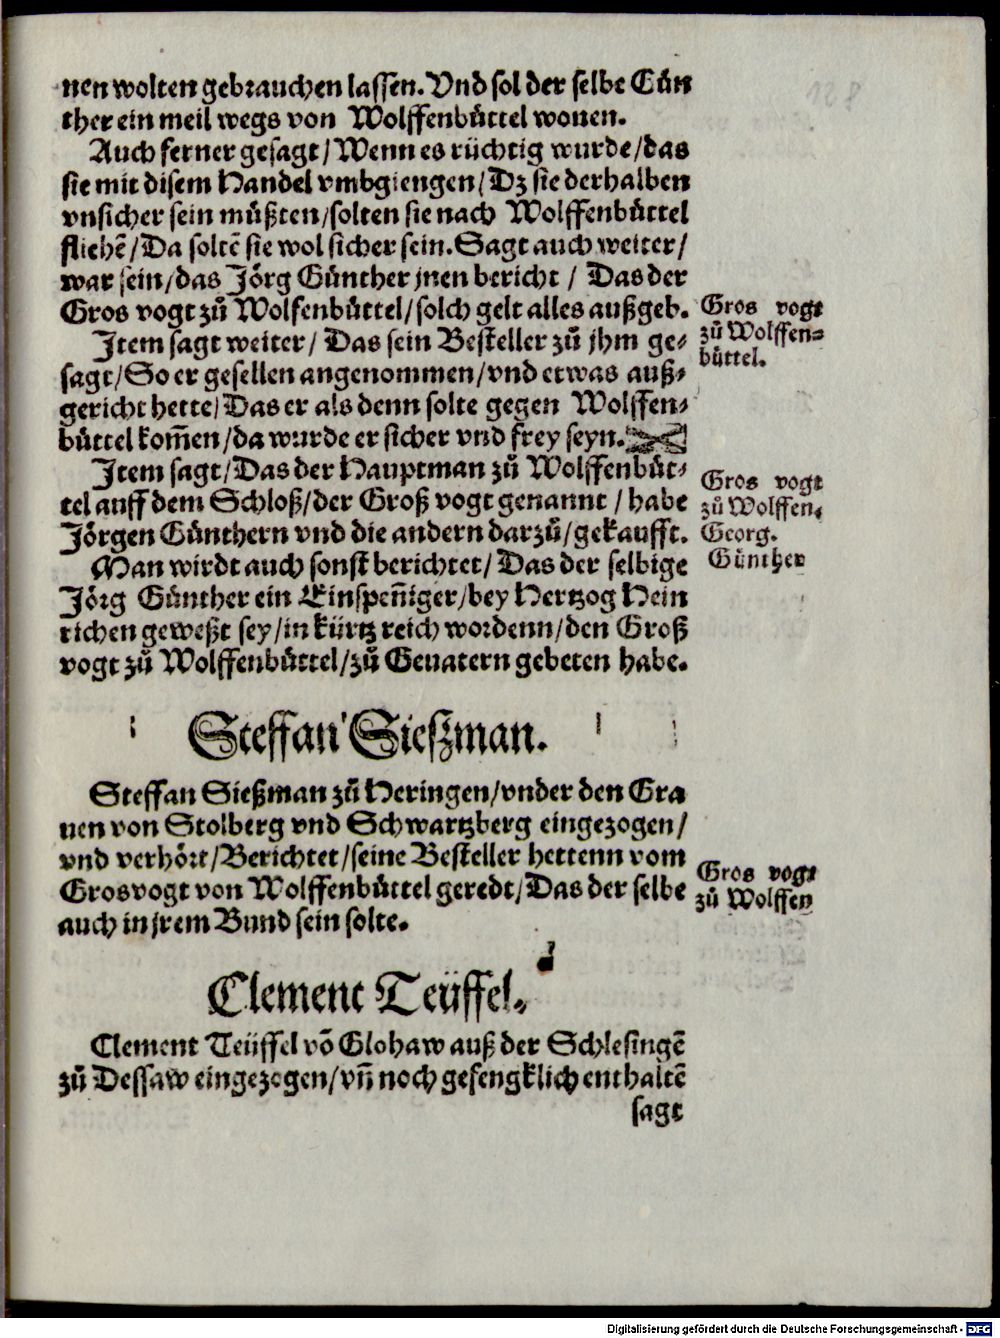 nen wolten gebrauchen lassen. Vnd sol der selbe Gün
ther ein meil wegs von Wolffenbüttel wonen.
Auch ferner gesagt / Wenn es rüchtig wurde / das
sie mit disem Handel vmbgiengen / Dz sie derhalben
vnsicher sein müßten / solten sie nach Wolffenbüttel
fliehẽ / Da soltẽ sie wol sicher sein. Sagt auch weiter /
war sein / das Jörg Günther jnen bericht / Das der
Gros vogt zů Wolfenbüttel / solch gelt alles außgeb.
Gros vogt
zů Wolffen-
büttel.
Jtem sagt weiter / Das sein Besteller zů jhm ge-
sagt / So er gesellen angenommen / vnd etwas auß-
gericht hette / Das er als denn solte gegen Wolffen-
büttel kom̃en / da wurde er sicher vnd frey seyn.
Jtem sagt / Das der Hauptman zů Wolffenbüt-
tel auff dem Schloß / der Groß vogt genannt / habe
Jörgen Günthern vnd die andern darzů / gekaufft.
Gros vogt
zů Wolffen.
Georg.
Günther
Man wirdt auch sonst berichtet / Das der selbige
Jörg Günther ein Einspen̄iger / bey Hertzog Hein
richen geweßt sey / in kürtz reich wordenn / den Groß
vogt zů Wolffenbüttel / zů Geuatern gebeten habe.
Steffan Sieszman.
Steffan Sießman zů Heringen / vnder den Gra
uen von Stolberg vnd Schwartzberg eingezogen /
vnd verhört / Berichtet / seine Besteller hettenn vom
Grosvogt von Wolffenbüttel geredt / Das der selbe
auch in jrem Bund sein solte.
Gros vogt
zů Wolffen
Clement Teüffel.
Clement Teüffel võ Glohaw auß der Schlesingẽ
zů Dessaw eingezogen / vñ noch gefengklich enthaltẽ
sagt
Digitalisierung gefördert durch die Deutsche Forschungsgemeinschaft - DFG